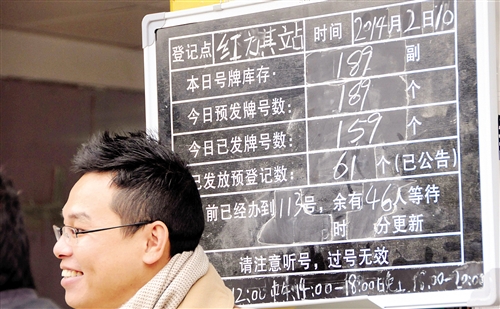 登记点 红方其站 时间 2014年2月10
本日号牌库存: 189 副
今日预发牌号数: 189 个
今日已发牌号数: 159 个
已发放预登记数: 61 个(已公告)
前已经办到112号,余有46人等待
时 分更新
请注意听号,过号无效
12:00 14:00-18:00